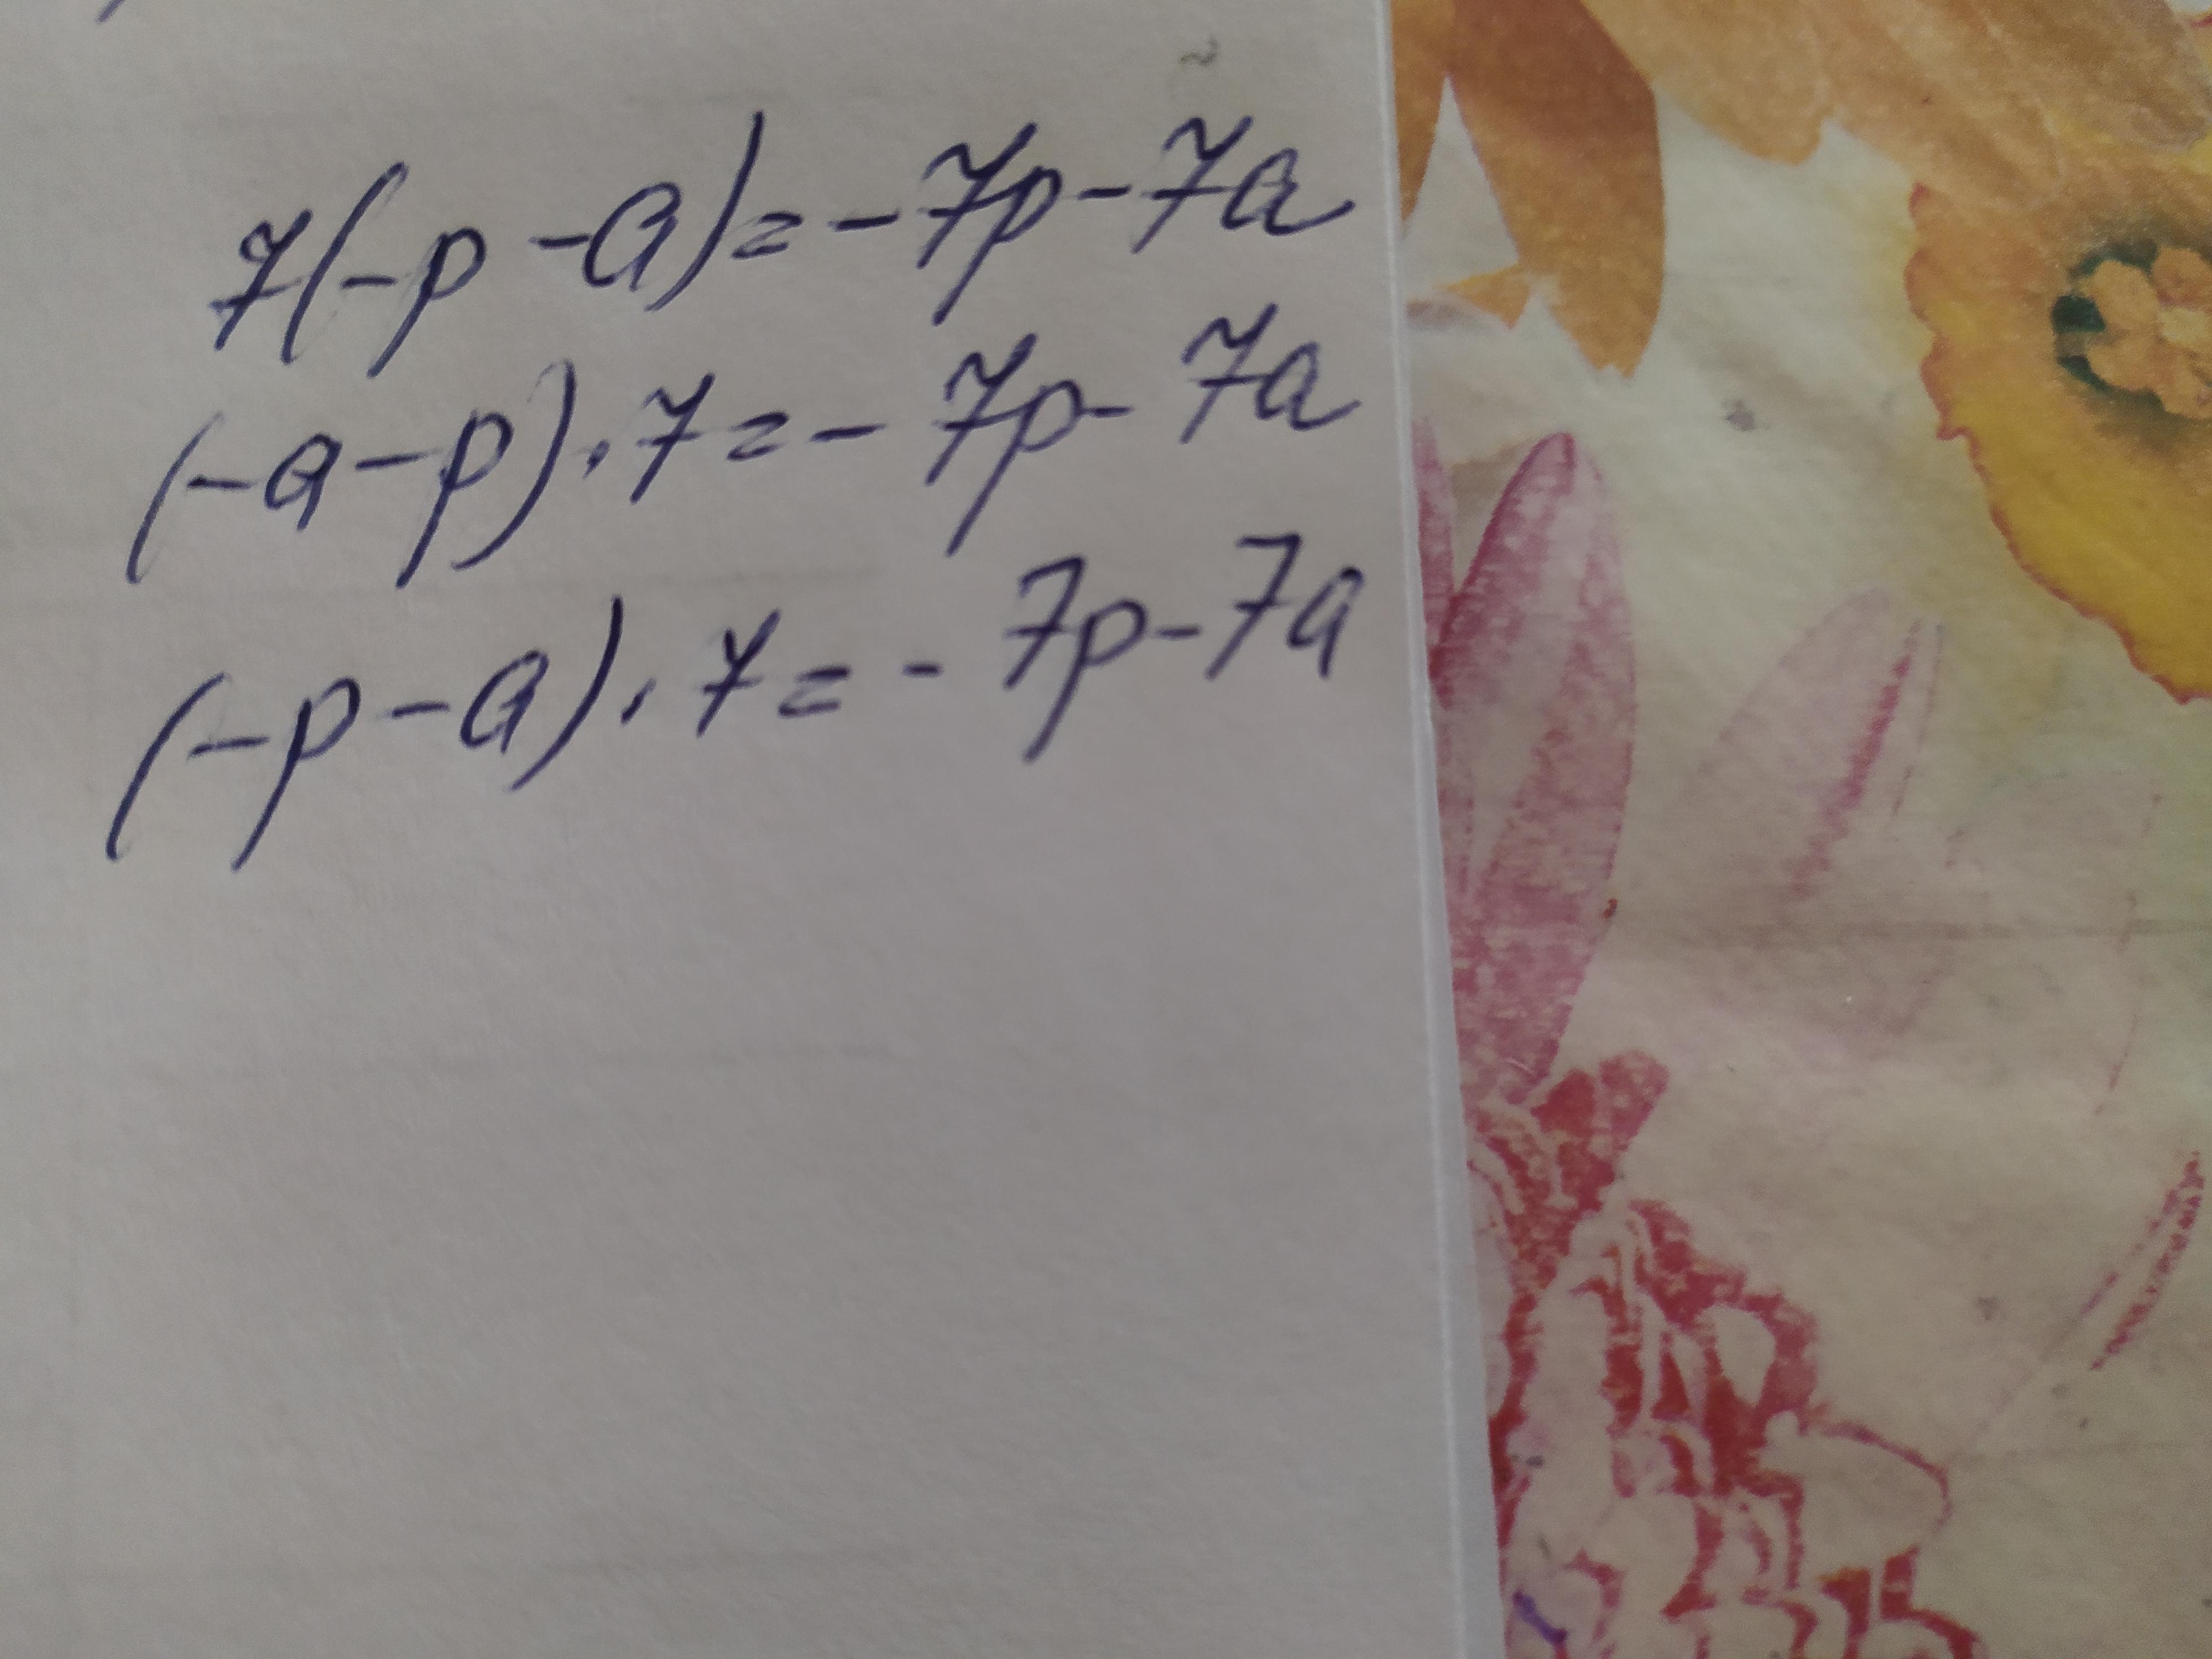 7(-p-a)=-7p-7a
(-a-p)·7=-7p-7a
(-p-a)·7=-7p-7a